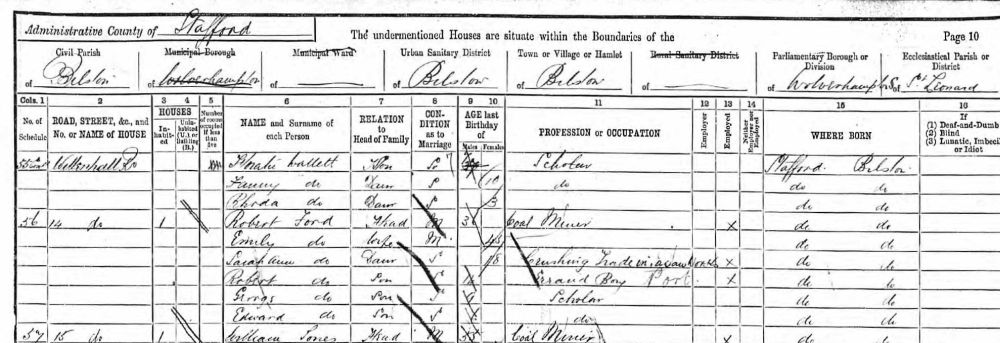 Administrative County of Stafford The undermentioned Houses are situate within the Boundaries of the Page 10
Civil Parish Municipal Borough Municipal Ward Urban Sanitary District Town or Village or Hamlet Rural Sanitary District Parliamentary Borough or Division Ecclesiastical Parish or District
of Bilston of Wolverhampton of of Bilston of Bilston of of Wolverhampton S. of St Leonard
Cols. 1 2 3 4 5 6 7 8 9 10 11 12 13 14 15 16
No. of Schedule ROAD, STREET, &c., and No. or NAME of HOUSE HOUSES Inhabited Uninhabited (U.) or Building (B.) Number of rooms occupied if less than five NAME and Surname of each Person RELATION to Head of Family CONDITION as to Marriage AGE last Birthday of Males Females PROFESSION or OCCUPATION Employer Employed Neither Employer nor Employed WHERE BORN (1) Deaf-and-Dumb (2) Blind (3) Lunatic, Imbecile or Idiot
Willenhall Rd Son S Scholar Stafford Bilston
Fanny do Daur S 10 do do do
do Daur S 3 do do
56 14 do 1 Robert Ford Head M Coal Miner X do do
Emily do Wife M do do
Sarah Ann do Daur S 18 X do do
Robert do Son S Errand Boy X do do
George do Son S Scholar do do
Edward do Son S do do do
57 15 do 1 William Jones Head M Coal Miner X do do